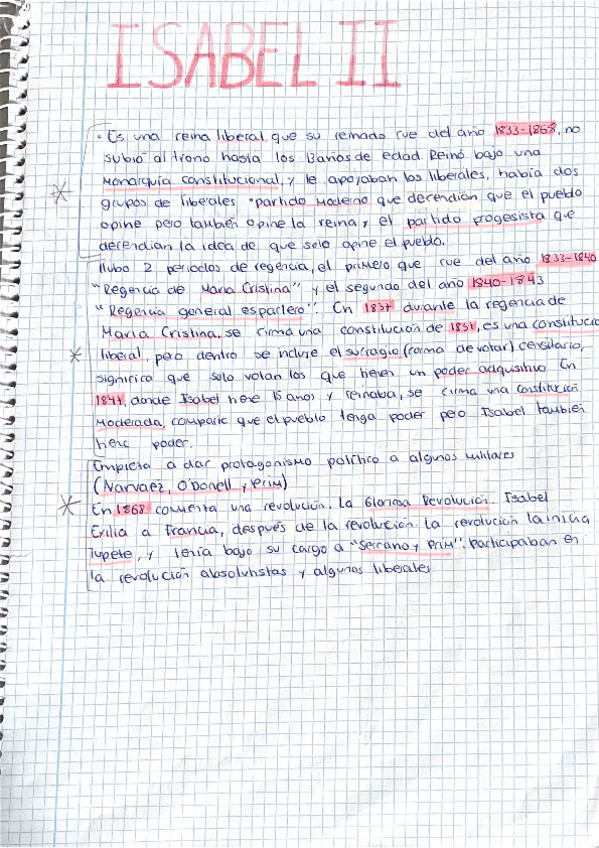 ISABEL II
· Es una reina liberal que su reinado fue del año 1833-1868, no
subió al trono hasta los 13 años de edad. Reinó bajo una
Monarquía constitucional, y le apoyaban los liberales, había dos
grupos de liberales "partido Moderno que defendían que el pueblo
opine pero también opine la reina, y el partido progesista que
defendían la idea de que solo opine el pueblo.
Hubo 2 periodos de regencia, el primero que fue del año 1833-1840
"Regencia de Maria Cristina" y el segundo del año 1840-1843
"Regencia general espartero". En 1837 durante la regencia de
Maria Cristina, se firma una constitución de 1837, es una constitució
liberal, pero dentro se incluye el sufragio (forma de votar) censitario,
significa que solo votan los que tienen un poder adquisitivo En
donde Isabel tiene 15 años y reinaba, se firma una Constitución
Moderada, comparte que el pueblo tenga poder pero Isabel también
tiene poder.
Empieza a dar protagonismo político a algunos militares
(Narvaez, O'Donell y Prim)
En 1868 comienza una revolución, La Gloriosa Revolución. Isabel
Exilia a Francia, después de la revolución. La revolución la inicia
Tupete, y tenía bajo su cargo a "Serrano y Prim". Participaban en
la revolución absolutistas y algunos liberales